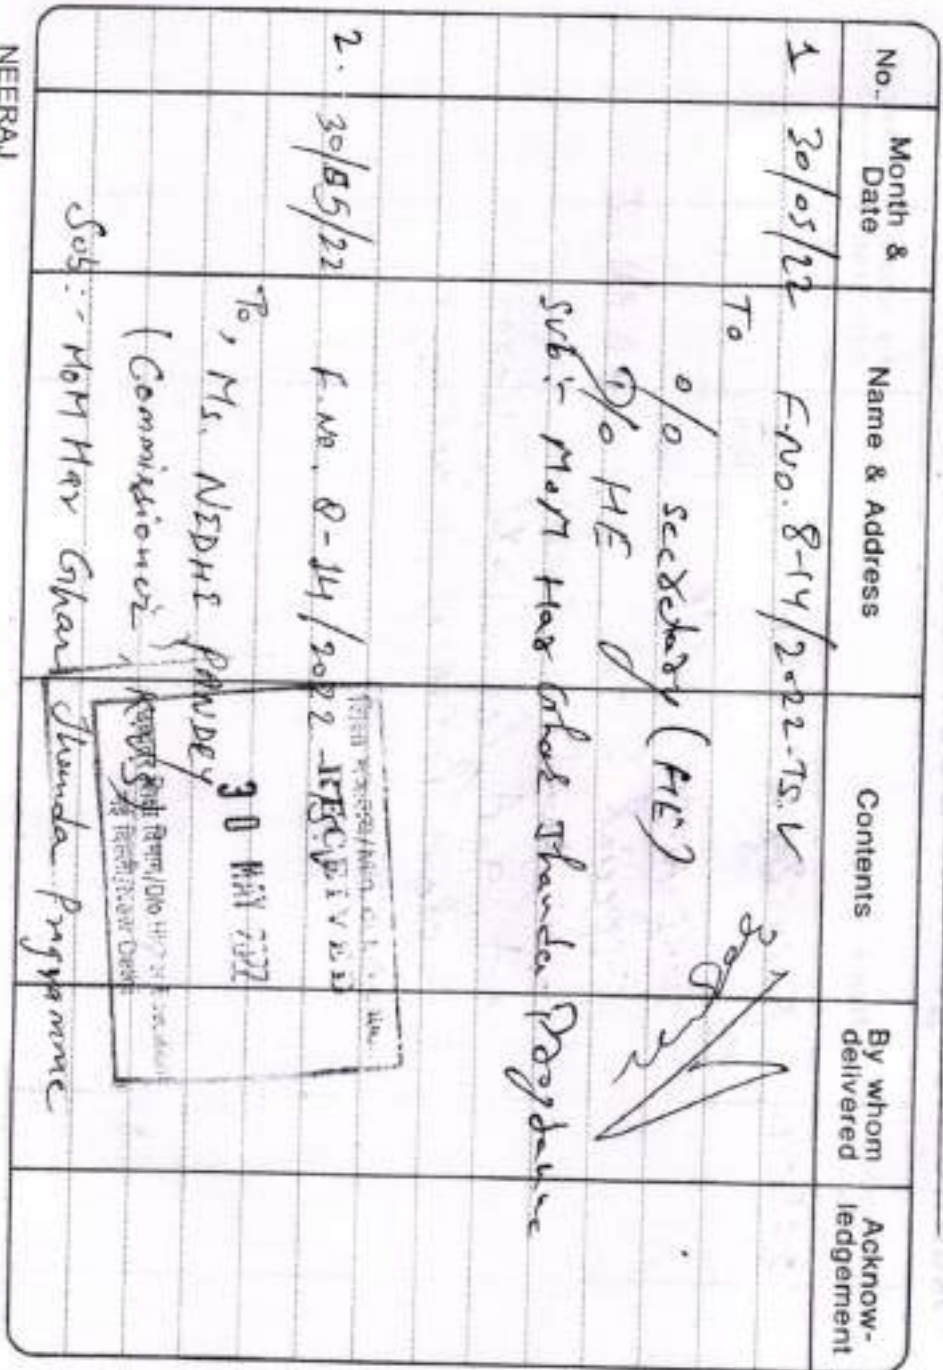 No.. Month & Date Name & Address Contents By whom delivered Acknow-ledgement
1 30/05/22 F.No. 8-14/2022-TS.V
To
o/o Secretary (HE)
D/o HE
Sub:- MoM Har Ghar Jhanda Programme
2. 30/05/22 F.No. 8-14/2022-TS.V
RECEIVED
To, Ms. NIDHI PANDEY
30 MAY 2022
(Commissioner, KVS)
Sub:- MoM Har Ghar Jhanda Programme
NEERAJ